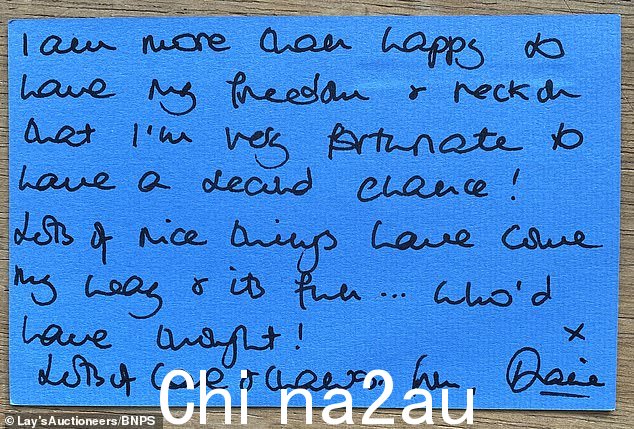 I am more than happy to
have my freedom & reckon
that I'm very fortunate to
have a second chance!
Lots of nice things have come
my way & its fun... who'd
have thought!
x
Lots of love & thanks from
Chi na2au
©Lay'sAuctioneers/BNPS